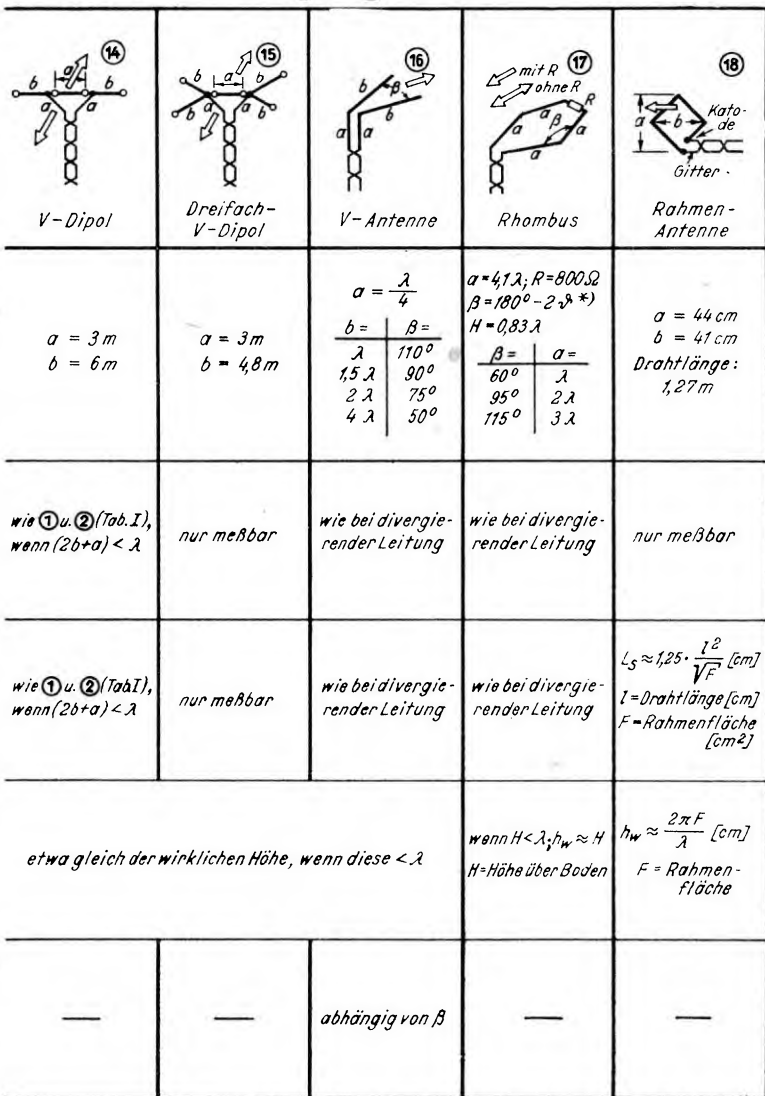 14
a
b
b
a
a
V-Dipol
15
b
a
b
b
a
a
b
Dreifach-
V-Dipol
16
b
β
b
a
a
V-Antenne
17
mit R
ohne R
R
a
a
β
a
a
Rhombus
18
a
b
Kato-
de
Gitter
Rahmen-
Antenne
a = 3m
b = 6m
a = 3m
b = 4,8m
a = λ/4
b = β =
λ 110°
1,5 λ 90°
2 λ 75°
4 λ 50°
a = 4,1 λ; R = 800 Ω
β = 180° - 2 ϑ *)
H = 0,83 λ
β = a =
60° λ
95° 2 λ
115° 3 λ
a = 44 cm
b = 41 cm
Drahtlänge:
1,27m
wie ① u. ② (Tab. I),
wenn (2b+a) < λ
nur meßbar
wie bei divergie-
render Leitung
wie bei divergie-
render Leitung
nur meßbar
wie ① u. ② (Tab.I),
wenn (2b+a) < λ
nur meßbar
wie bei divergie-
render Leitung
wie bei divergie-
render Leitung
L_S ≈ 1,25 · l²/√F [cm]
l = Drahtlänge [cm]
F = Rahmenfläche
[cm²]
etwa gleich der wirklichen Höhe, wenn diese < λ
wenn H < λ; h_w ≈ H
H = Höhe über Boden
h_w ≈ 2πF/λ [cm]
F = Rahmen-
fläche
—
—
abhängig von β
—
—